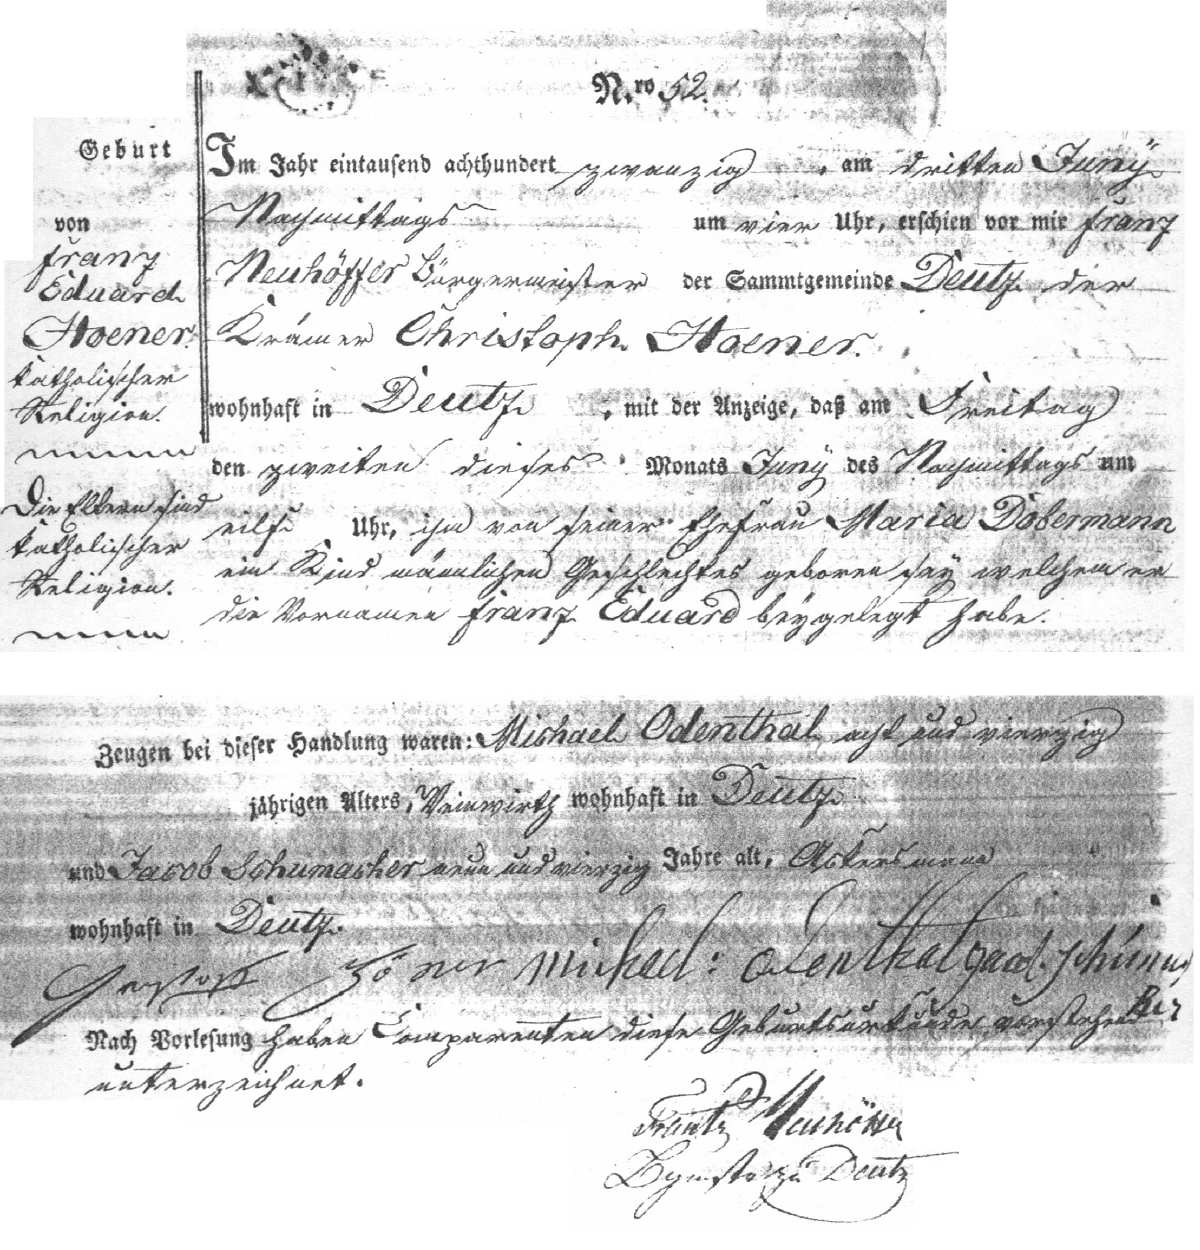 N.ro 52.
Geburt
von
Franz
Eduard
Hoener.
katholischer
Religion.
Die Eltern sind
katholischer
Religion.
Im Jahr eintausend achthundert zwanzig, am dritten Juny
Nachmittags um vier Uhr, erschien vor mir Franz
Neuhöffer Bürgermeister der Sammtgemeinde Deutz der
Krämer Christoph Hoener.
wohnhaft in Deutz, mit der Anzeige, daß am Freitag
den zweiten dieses Monats Juny des Nachmittags um
eilf Uhr, ihm von seiner Ehefrau Maria Dobermann
ein Kind männlichen Geschlechtes geboren sey welchem er
die Vornamen Franz Eduard beygelegt habe.
Zeugen bei dieser Handlung waren: Michael Odenthal acht und vierzig
jährigen Alters, Weinwirth wohnhaft in Deutz
und Jacob Schumacher neun und vierzig Jahre alt, Ackersmann
wohnhaft in Deutz.
Christoff Höner michael: odenthal Jacob schumacher
Nach Vorlesung haben Comparenten diese Geburtsurkunde vorstehend
unterzeichnet.
Frantz Neuhöffer
Bgmster zu Deutz